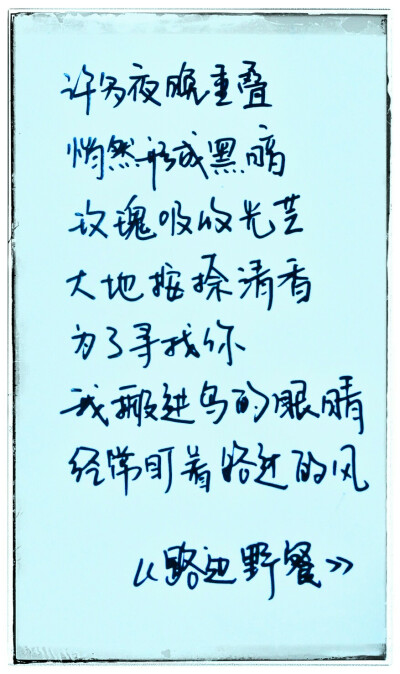 许多夜晚重叠
悄然形成黑暗
玫瑰吸收光芒
大地按捺清香
为了寻找你
我搬进鸟的眼睛
经常盯着路过的风
《路边野餐》